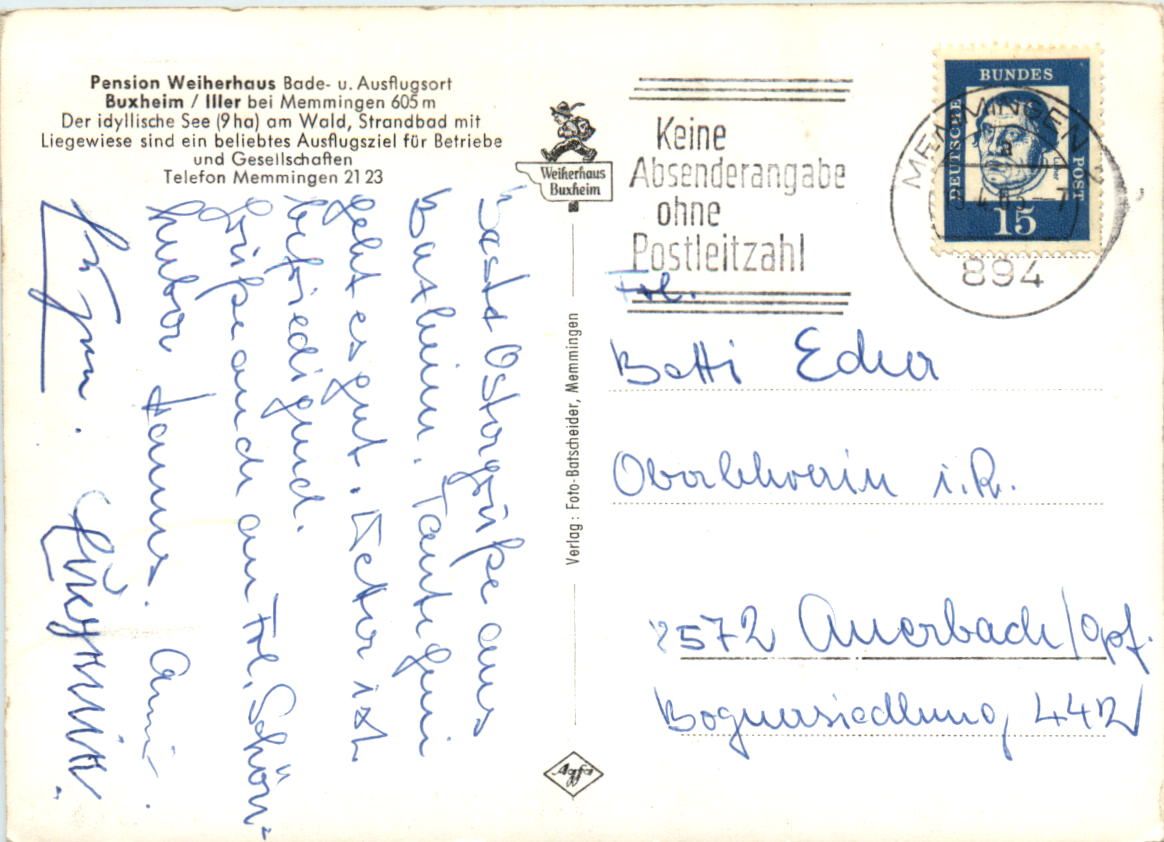 Pension Weiherhaus Bade- u. Ausflugsort
Buxheim / Iller bei Memmingen 605 m
Der idyllische See (9 ha) am Wald, Strandbad mit
Liegewiese sind ein beliebtes Ausflugsziel für Betriebe
und Gesellschaften
Telefon Memmingen 21 23
Weiherhaus
Buxheim
Keine
Absenderangabe
ohne
Postleitzahl
MEMMINGEN
a
894
DEUTSCHE
BUNDES
POST
15
Beste Ostergrüße aus
Buxheim. Tante
geht es gut. Wetter ist
befriedigend.
Grüße auch an Frl. Schön-
huber
Verlag: Foto-Batscheider, Memmingen
Agfa
Frl.
Betti Eder
Oberlehrerin i. R.
8572 Auerbach/Opf.
Bognersiedlung 442